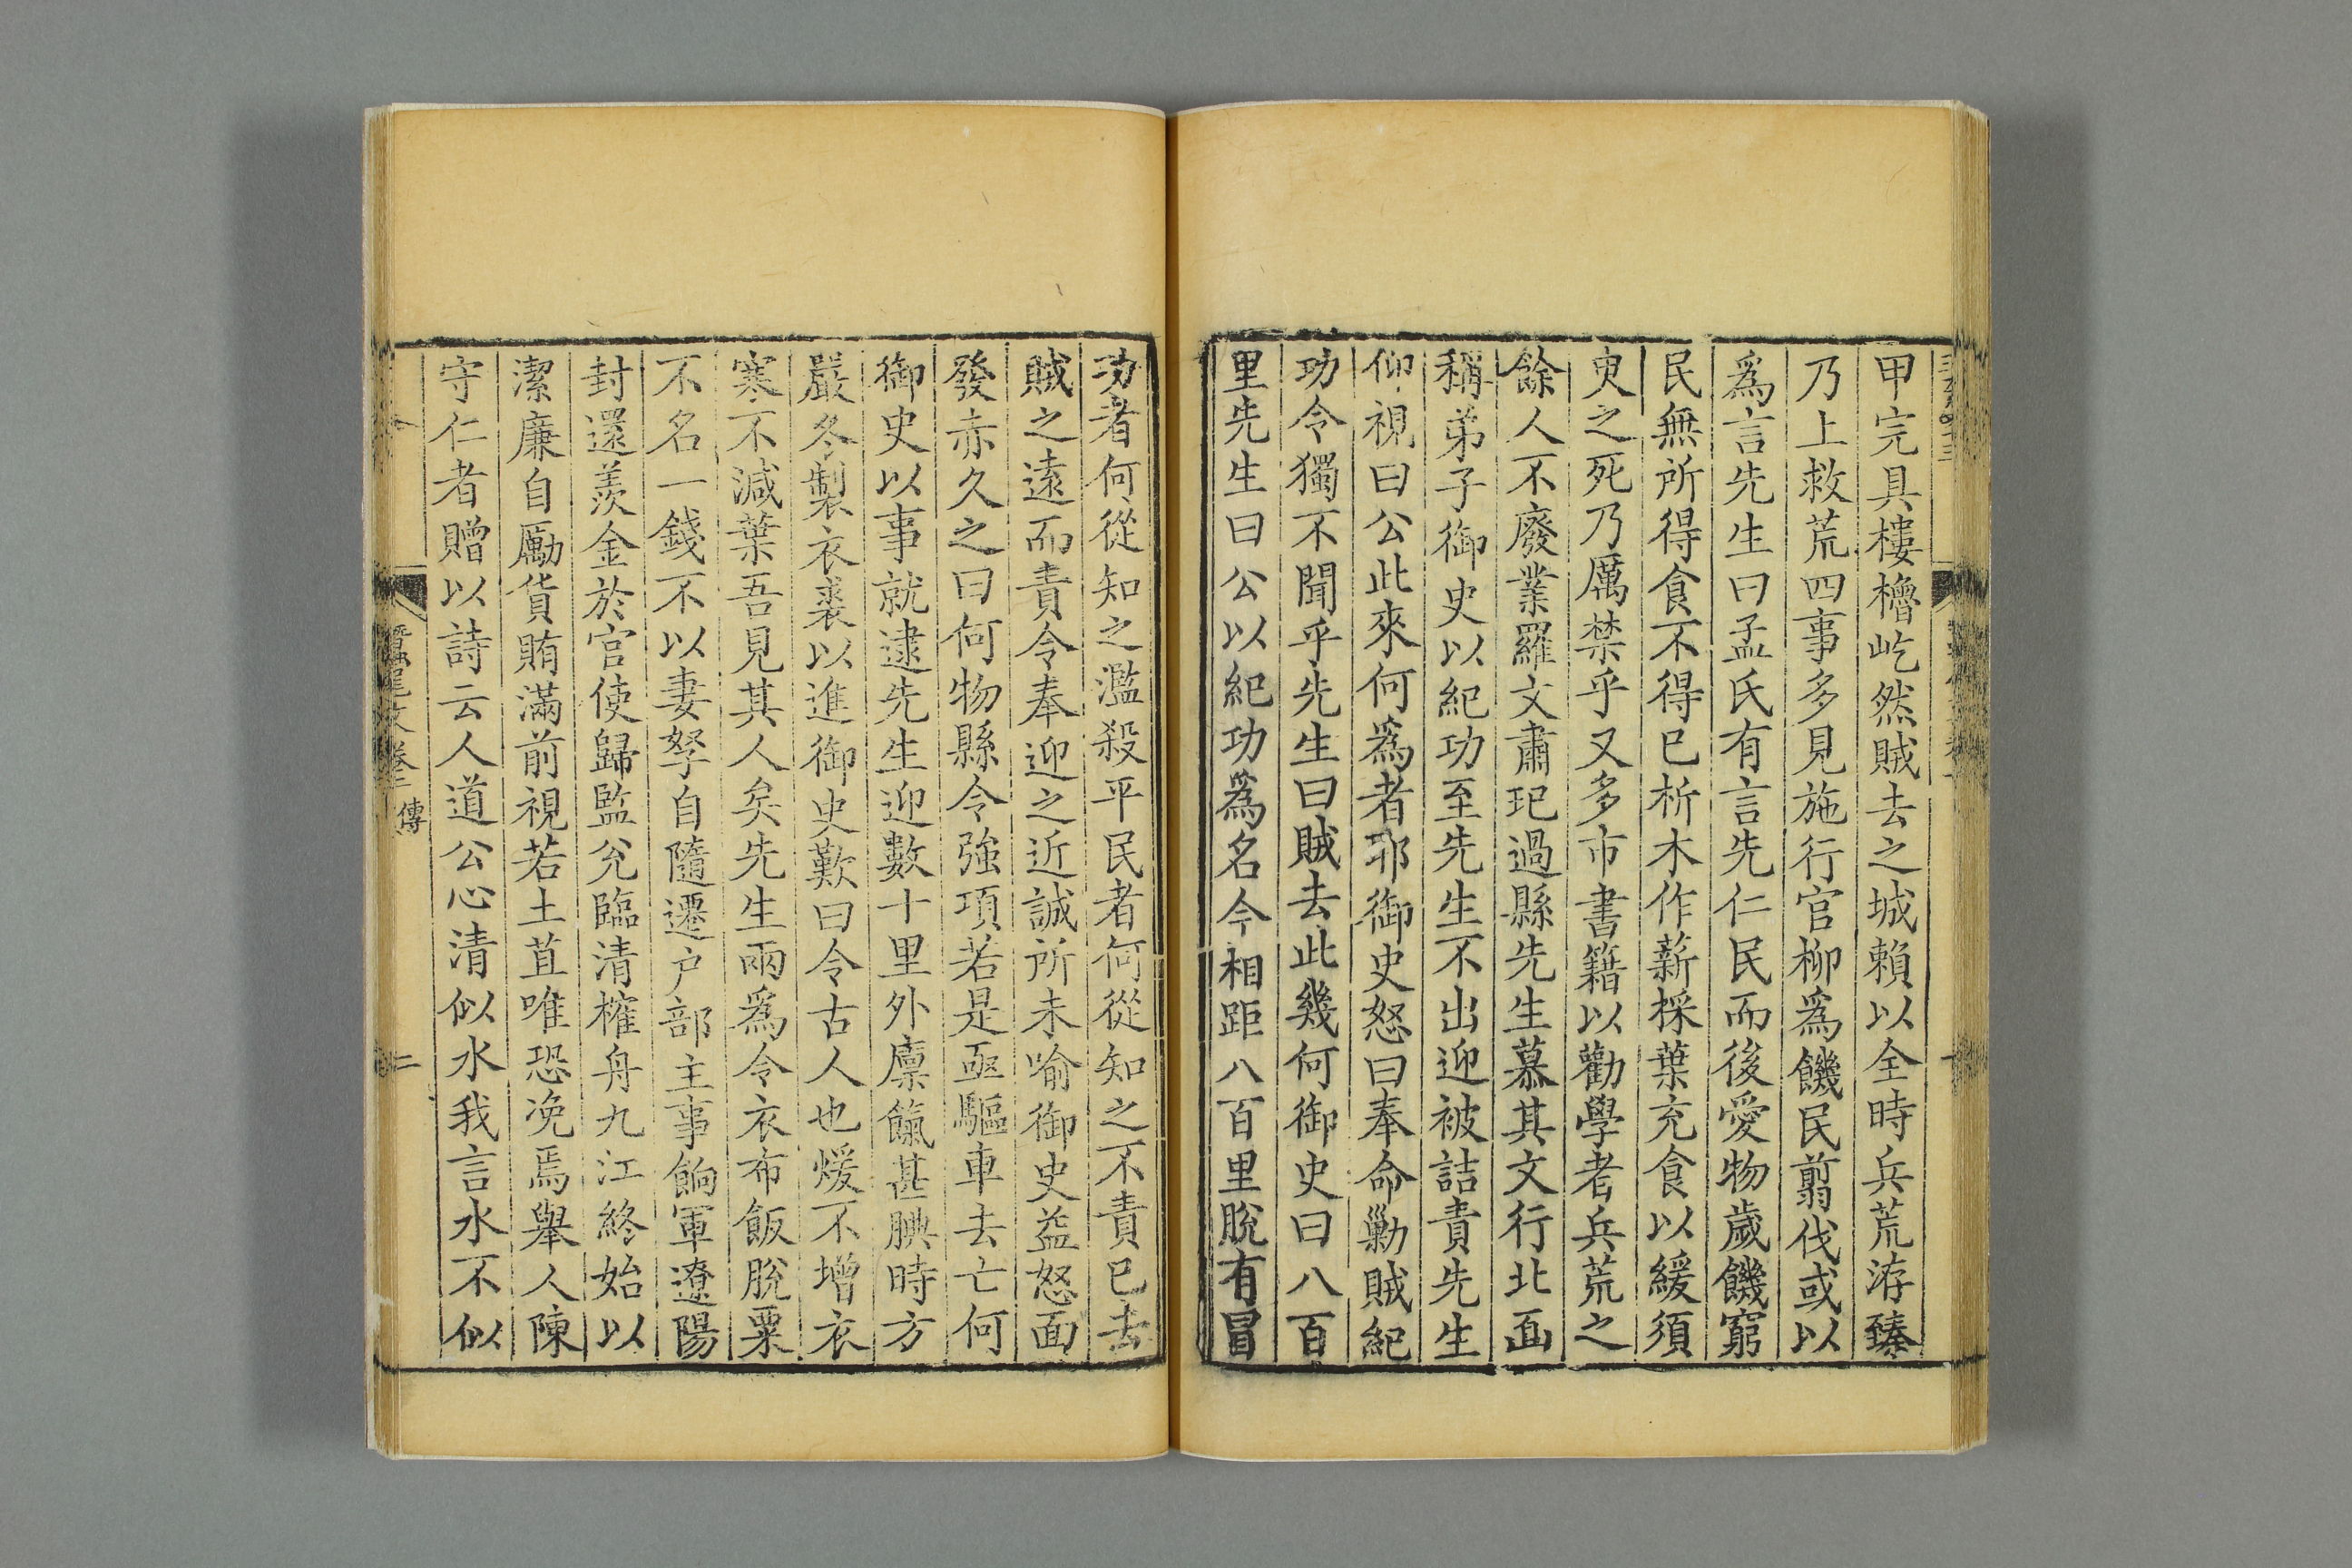 甲完具樓櫓屹然賊去之城賴以全時兵荒洊臻
乃上救荒四事多見施行官柳爲饑民翦伐或以
爲言先生曰孟氏有言先仁民而後愛物歲饑窮
民無所得食不得已析木作薪採葉充食以緩須
臾之死乃厲禁乎又多市書籍以勸學者兵荒之
餘人不廢業羅文肅玘過縣先生慕其文行北面
稱弟子御史以紀功至先生不出迎被詰責先生
仰視曰公此來何爲者耶御史怒曰奉命勦賊紀
功令獨不聞乎先生曰賊去此幾何御史曰八百
里先生曰公以紀功爲名今相距八百里脫有冒
功者何從知之濫殺平民者何從知之不責已去
賊之遠而責令奉迎之近誠所未喻御史益怒面
發赤久之曰何物縣令強項若是亟驅車去亡何
御史以事就逮先生迎數十里外廩餼甚腆時方
嚴冬製衣裘以進御史歎曰令古人也煖不增衣
寒不減葉吾見其人矣先生兩爲令衣布飯脫粟
不名一錢不以妻孥自隨遷户部主事餉軍遼陽
封還羨金於官使歸監兌臨清榷舟九江終始以
潔廉自勵貨賄滿前視若土苴唯恐浼焉舉人陳
守仁者贈以詩云人道公心清似水我言水不似
蠶尾文卷二 傳 二